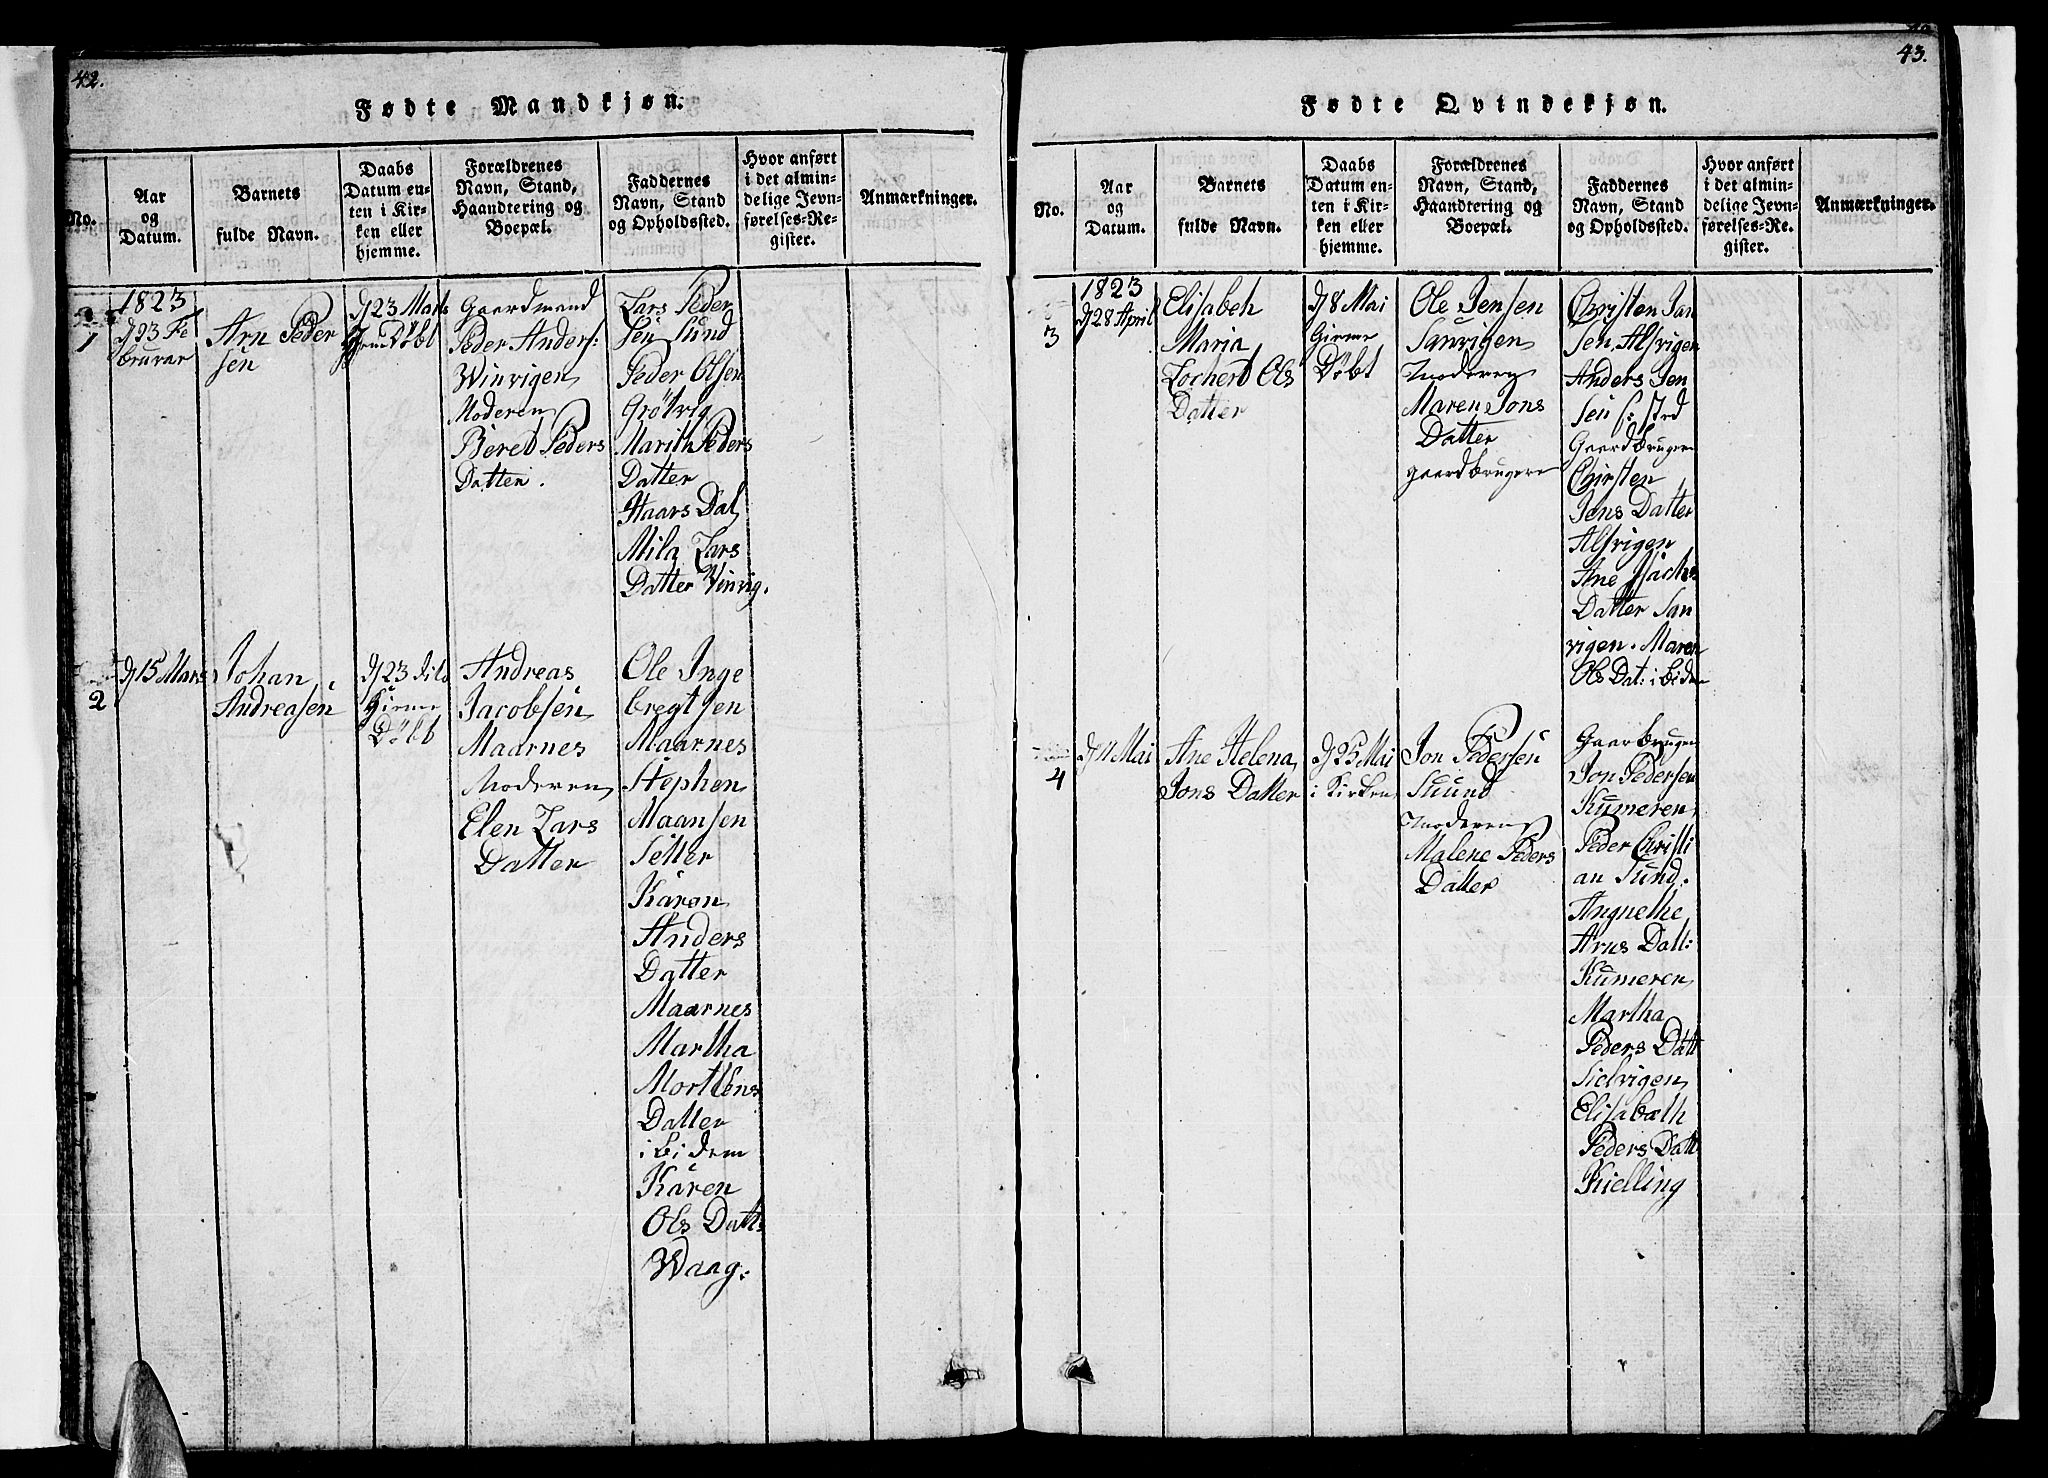 42.
Fødte Mandkjøn.
No.
Aar
og
Datum.
Barnets
fulde Navn.
Daabs
Datum en-
ten i Kir-
ken eller
hjemme.
Forældrenes
Navn, Stand,
Haandtering og
Boepæl.
Faddernes
Navn, Stand
og Opholdssted.
Hvor anført
i det almin-
delige Jevn-
førelses-Re-
gister.
Anmærkninger.
1
1823
d 23 Fe
bruvar
Arn Peder
sen
d 23 Marts
Døbt
Gaardmand
Peder Anders:
Winvigen
Moderen
Beret Peders
Datter.
Lars Peder
sen Sund
Peder Olsen
Grötvig
Marith Peders
Datter
Haars Dal
Mila Lars
Datter Vinvig.
2
d 15 Mars
Johan
Andreasen
d 23
Hieme
Döbt
Andreas
Jacobsen
Maarnes
Moderen
Elen Lars
Datter
Ole Inge
bregtsen
Maarnes
Stephen
Maansen
Setter
Karen
Anders
Datter
Maarnes
Martha
Mortens
Datter
ibidem
Karen
Ols Datt:
Waag.
43.
Fødte Qvindekjøn.
No.
Aar
og
Datum.
Barnets
fulde Navn.
Daabs
Datum en-
ten i Kir-
ken eller
hjemme.
Forældrenes
Navn, Stand,
Haandtering og
Boepæl.
Faddernes
Navn, Stand
og Opholdssted.
Hvor anført
i det almin-
delige Jevn-
førelses-Re-
gister.
Anmærkninger.
3
1823
d 28 April
Elisabeh
Maria
Lochert Ols
Datter
d 8 Mai
Hieme
Döbt
Ole Jensen
Sanvigen
Moderen
Maren Jons
Datter
gaardbrugere
Christen Jan
sen, Alsvigen
Anders Jen
sen
Gaardbrugere
Chirsten
Jens Datter
Alsvigen
Ane
Datter San
vigen. Maren
Ols Dat: ibidem
4
d 11 Mai
Ane Helena
Jons Datter
d 25 Mai
i Kirken
Jon Pedersen
Suund
Moderen
Malene Peders
Datter
Gaarbrugen
Jon Pedersen
Kumeren
Peder Christi
an Sund.
Angnethe
Arns Datt:
Kumeren
Martha
Peders Datt
Sielvigen
Elisabæth
Peders Datt
Kielling